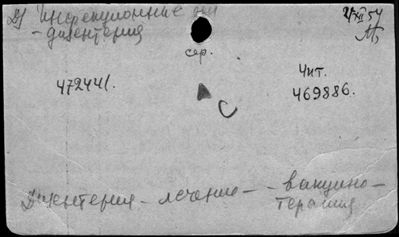 инфекционные
- дизентерия
сер.
472441.
Чит.
469886.
Дизентерия - лечение - - вакцино -
терапия